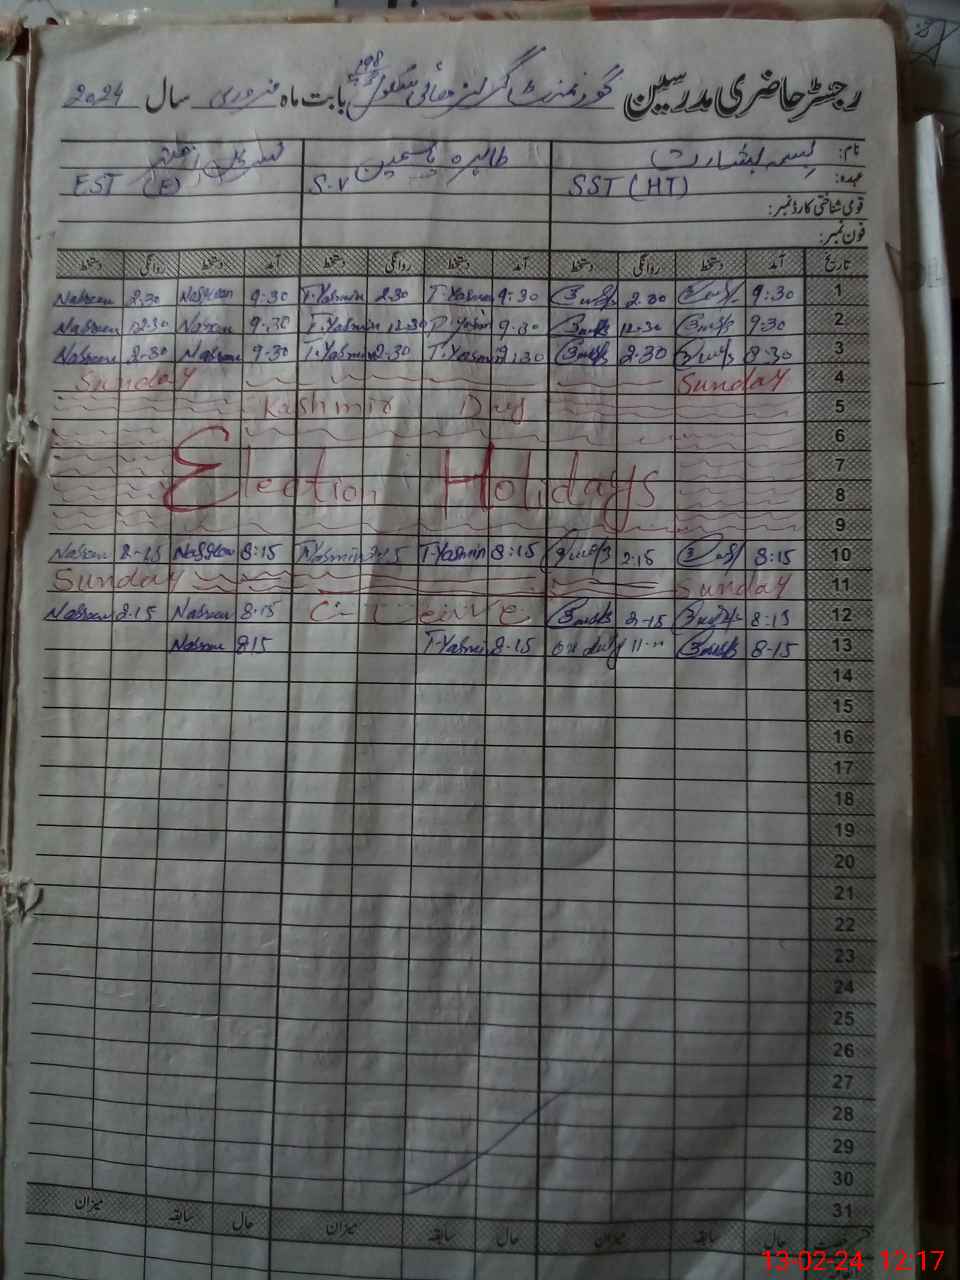 رجسٹر حاضری مدرسین گورنمنٹ گرلز ہائی سکول 198 بابت ماہ فروری سال 2024
نام: بسمہ بشارت طاہرہ یاسمین
عہدہ: SST (HT) S.V EST (F)
قومی شناختی کارڈ نمبر:
فون نمبر:
تاریخ آمد دستخط روانگی دستخط آمد دستخط روانگی دستخط آمد دستخط روانگی دستخط
1 9:30 2.30 9:30 T.Yasmin 2.30 T.Yasmin 9:30 Nasreen 2.30 Nasreen
2 9:30 12-30 9.30 T.Yasmin 12.30 T.Yasmin 9.30 Nasreen 12.30 Nasreen
3 8:30 2.30 9:30 T.Yasmin 2.30 T.Yasmin 9.30 Nasreen 2-30 Nasreen
4 Sunday Sunday
5 Kashmir Day
6
7 Election Holidays
8
9
10 8:15 2:15 8:15 T.Yasmin 2:15 T.Yasmin 8:15 Nasreen 2-15 Nasreen
11 Sunday Sunday
12 8:15 2-15 C-Leave 8.15 Nasreen 2.15 Nasreen
13 8-15 on duty 8-15 T.Yasmin 8.15 Nasreen
14
15
16
17
18
19
20
21
22
23
24
25
26
27
28
29
30
31
میزان سابقہ حال میزان سابقہ حال میزان سابقہ حال
13-02-24 12:17